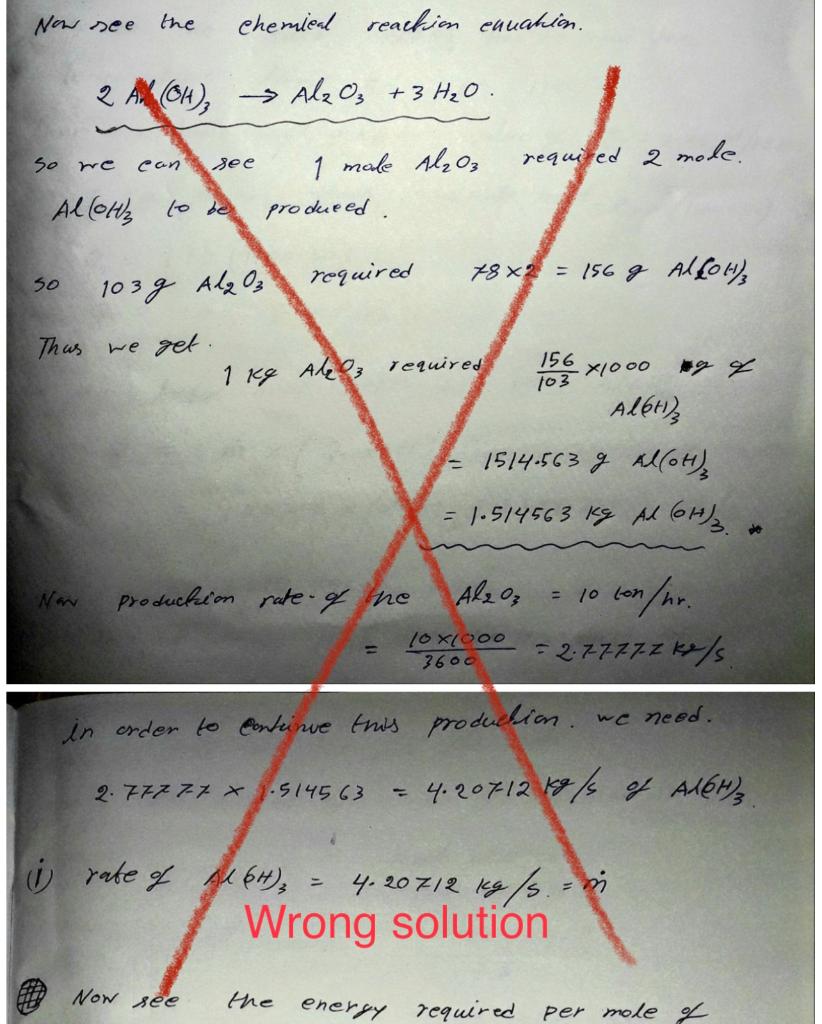 Now see the chemical reaction equation.
2 Al(OH)3 → Al2O3 + 3H2O.
so we can see 1 mole Al2O3 required 2 mole.
Al(OH)3 to be produced.
so 103g Al2O3 required 78×2 = 156 g Al(OH)3
Thus we get.
1 Kg Al2O3 required 156/103 ×1000 g of
Al(OH)3
= 1514.563 g Al(OH)3
= 1.514563 Kg Al(OH)3.
Now production rate of the Al2O3 = 10 ton/hr.
= 10×1000/3600 = 2.77777 kg/s.
in order to continue this production. we need.
2.77777 × 1.514563 = 4.20712 kg/s of Al(OH)3
(i) rate of Al(OH)3 = 4.20712 kg/s. = ṁ
Wrong solution
Now see the energy required per mole of